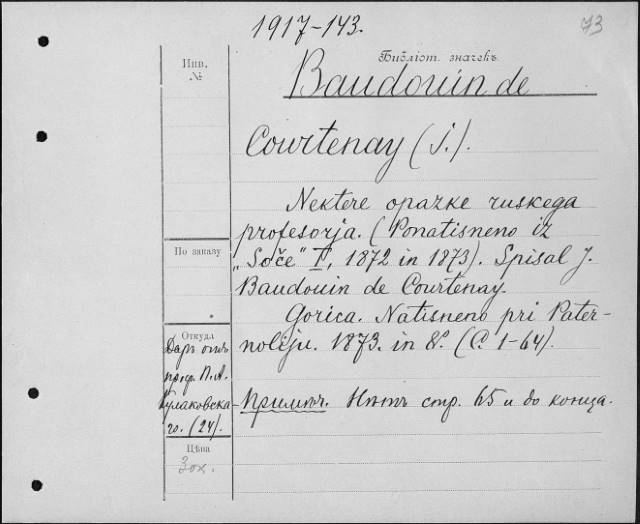 1917-143.
73
Инв.
№
Библіот. значекъ
Baudouin de
Courtenay (J.).
Nektere opazke ruskega
profesorja. (Ponatisneno iz
„Soče" II, 1872 in 1873). Spisal J.
Baudouin de Courtenay.
Gorica. Natisneno pri Pater-
nolliju. 1873. in 8°. (С. 1-64).
По заказу
Откуда
Даръ отъ
проф. П. А.
Кулаковска-
го. (24).
Примѣч. Нѣтъ стр. 65 и до конца.
Цѣна